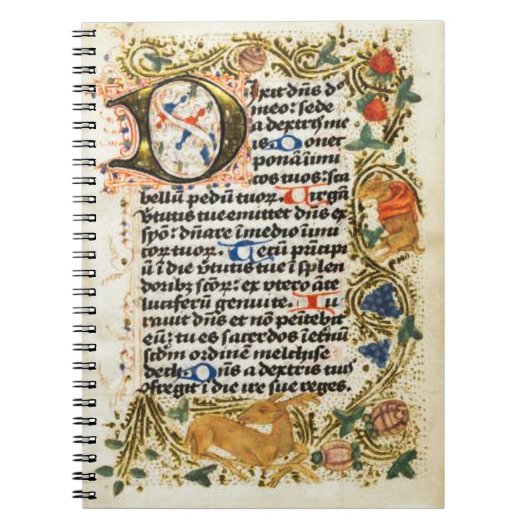 Dixit dn̄s dn̄o
meo: sede
a dextris me
is Donec
ponā īimi
cos tuos: sca
bellū pedū tuoꝝ. Virgā
v̄tutis tue emittet dn̄s ex
syō: dn̄are ī medio īimi
coꝝ tuoꝝ. Tecū prīcipi
ū ī die v̄tutis tue ī splen
doribꝫ sc̄oꝝ: ex vtero āte
luciferū genui te. Iu
rauit dn̄s et nō penitebit
eū: tu es sacerdos īetnū
scd̄m ordinē melchise
dech Dn̄s a dextris tuis
ꝯfregit ī die ire sue reges.